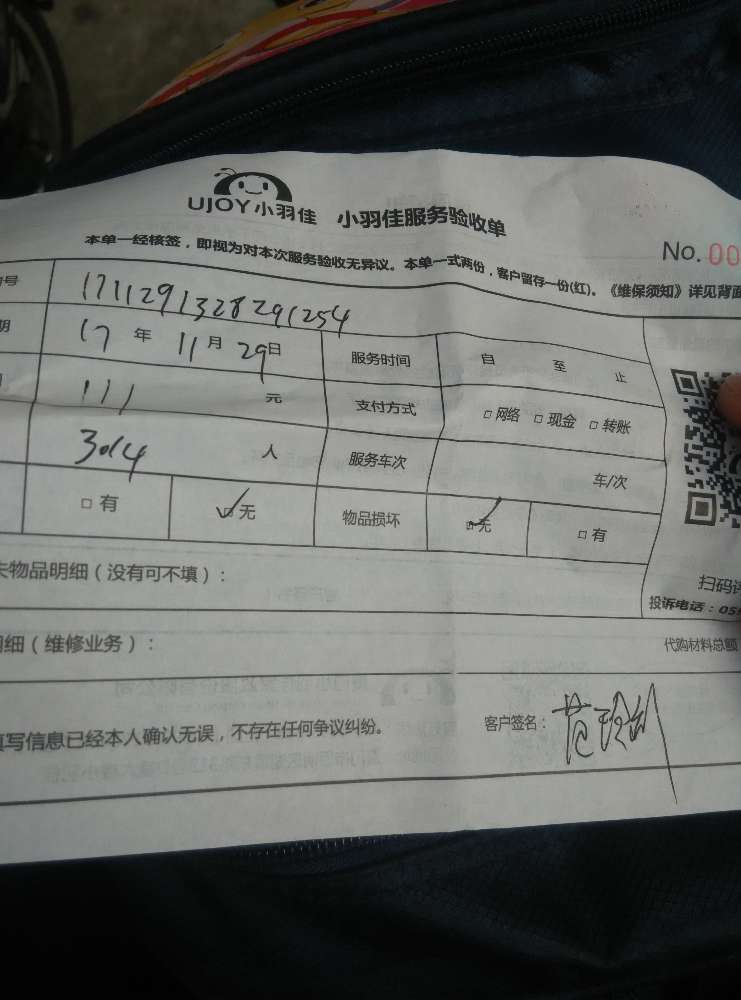 UJOY小羽佳 小羽佳服务验收单
本单一经核签，即视为对本次服务验收无异议。本单一式两份，客户留存一份(红)。《维保须知》详见背面
No. 00
号 1711291328291254
期 17年11月29日 服务时间 自 至 止
111元 支付方式 □网络 □现金 □转账
3014人 服务车次 车/次
□有 ☑无 物品损坏 ☑无 □有
失物品明细（没有可不填）：
扫码
投诉电话：05
明细（维修业务）：
代购材料总额
填写信息已经本人确认无误，不存在任何争议纠纷。
客户签名：范玲